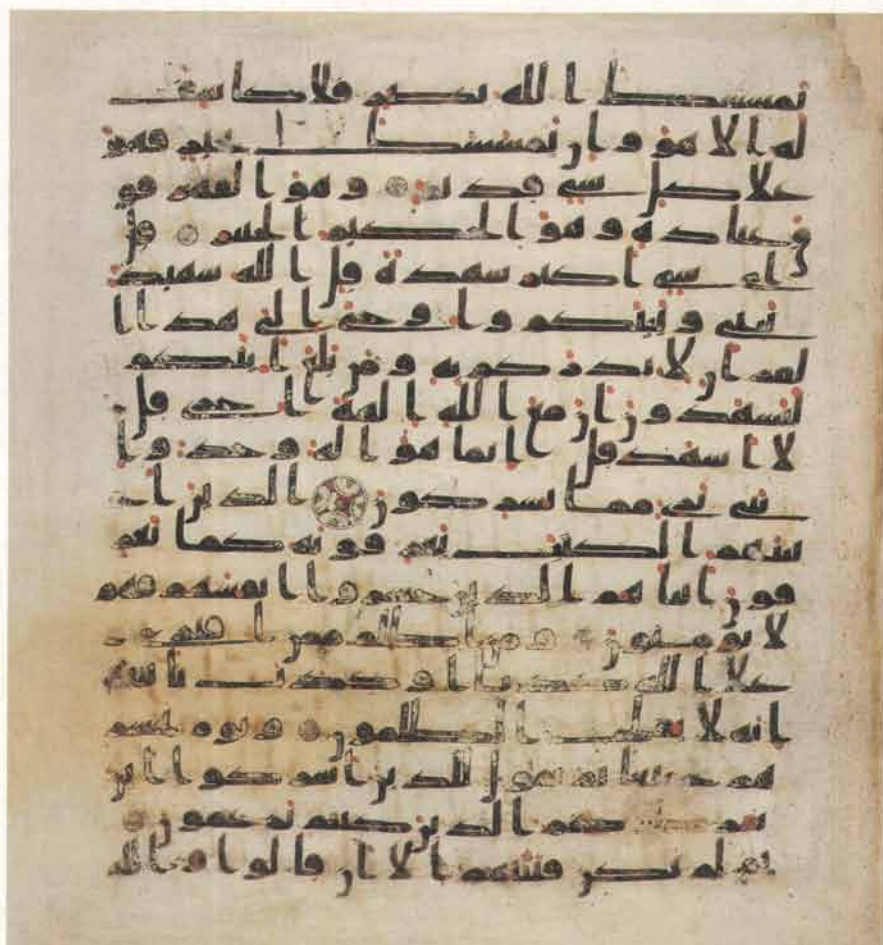 يمسسك الله بضر فلا كاشف
له الا هو وان يمسسك بخير فهو
علا كل شى قدير وهو القهر فو
ق عباده وهو الحكيم الخبير قل
اى شى اكبر شهدة قل الله شهيد
بينى وبينكم واوحى الى هذا ا
لقران لانذركم به ومن بلغ اينكم
لتشهدون ان مع الله الهة اخرى قل
لا اشهد قل انما هو اله وحد وا
ننى برى مما تشركون الذين ا
تينهم الكتب يعرفونه كما يعر
فون ابناهم الذين خسروا انفسهم فهم
لا يومنون ومن اظلم ممن افترى
علا الله كذبا او كذب بايته
انه لا يفلح الظلمون ويوم نحشر
هم جميعا ثم نقول للذين اشركوا اين
شركاوكم الذين كنتم تزعمون
ثم لم تكن فتنتهم الا ان قالوا والله